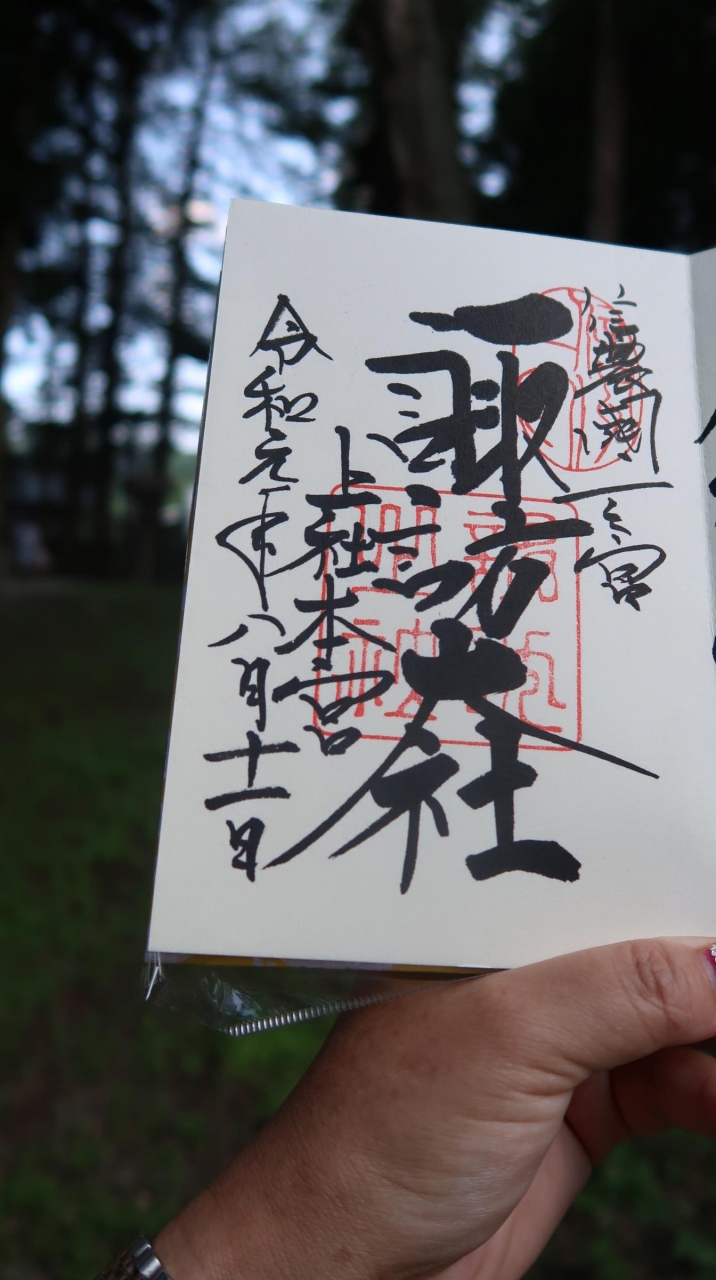 信濃國一之宮
諏訪大社
上社本宮
令和元年八月十一日